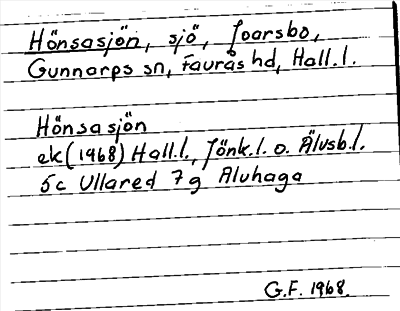 Hönsasjön, sjö, Joarsbo,
Gunnarps sn, Faurås hd, Hall.l.
Hönsasjön
ek(1968) Hall.l., Jönk.l. o. Älvsb.l.
5c Ullared 7g Alvhaga
G.F. 1968.